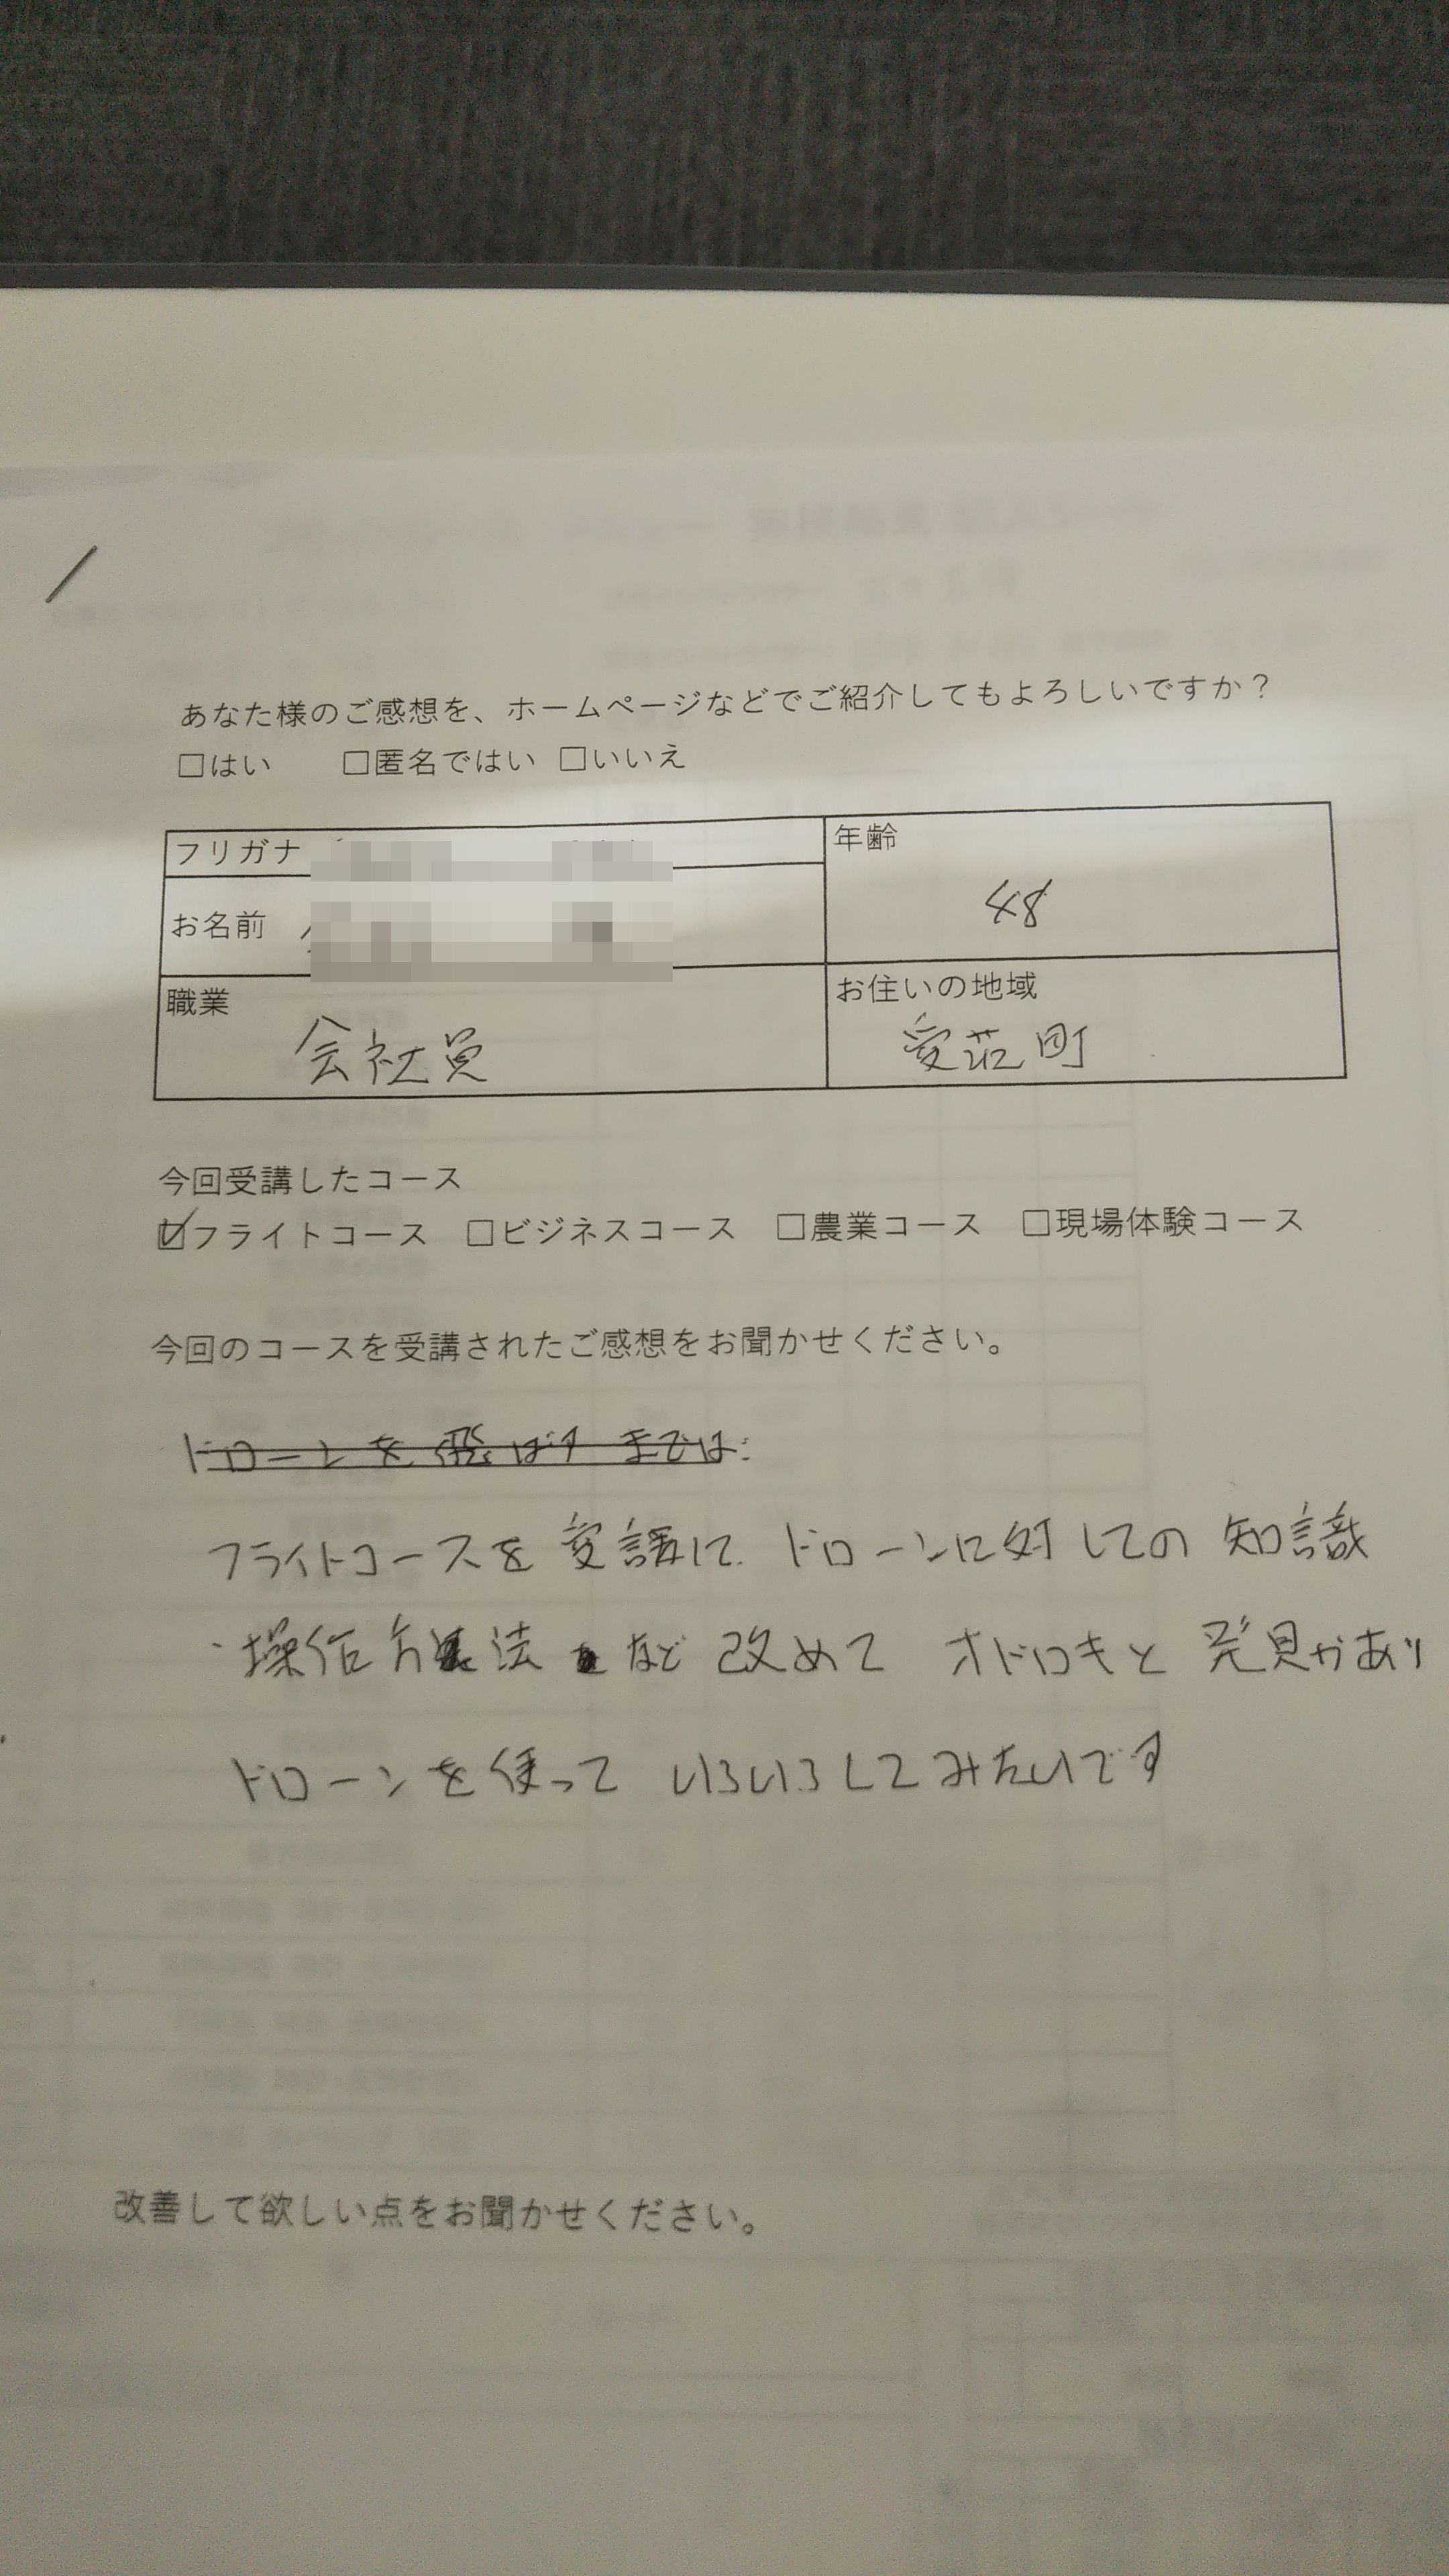 あなた様のご感想を、ホームページなどでご紹介してもよろしいですか？
□はい □匿名ではい □いいえ
フリガナ
年齢
48
お名前
職業
会社員
お住いの地域
愛荘町
今回受講したコース
☑フライトコース □ビジネスコース □農業コース □現場体験コース
今回のコースを受講されたご感想をお聞かせください。
ドローンを飛ばすまでは
フライトコースを受講して ドローンに対しての 知識
・操作方法 など 改めて オドロキと 発見があり
ドローンを使って いろいろしてみたいです
改善して欲しい点をお聞かせください。